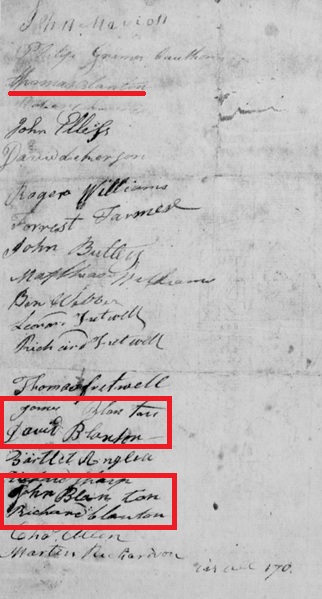 John Marion
Philip Grimes Cauthorn
Thomas Blanton
John Elliss
David
Roger Williams
Forrest Farmer
John Butler
Matthias Williams
Ben Webber
Leonard Fretwell
Richard Fretwell
Thomas Fretwell
James Blantan
David Blanton
Bartlet Anglea
Sharp
John Blan ton
Richard Clanton
Chas Allen
Martin Richardson
170